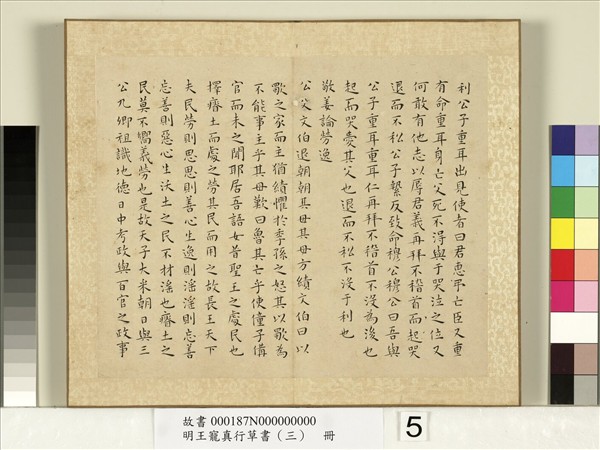 利公子重耳出見使者曰君惠弔亡臣又重
有命重耳身亡父死不得與于哭泣之位又
何敢有他志以辱君義再拜不稽首而起哭
退而不私公子縶反致命穆公穆公曰吾與
公子重耳重耳仁再拜不稽首不沒為後也
起而哭愛其父也退而不私不沒于利也
敬姜論勞逸
公父文伯退朝朝其母其母方績文伯曰以
歜之家而主猶績懼於季孫之怒其以歜為
不能事主乎其母歎曰魯其亡乎使僮子備
官而未之聞耶居吾語女昔聖王之處民也
擇瘠土而處之勞其民而用之故長王天下
夫民勞則思思則善心生逸則淫淫則忘善
忘善則惡心生沃土之民不材淫也瘠土之
民莫不嚮義勞也是故天子大采朝日與三
公九卿祖識地德日中考政與百官之政事
故書 000187N000000000
明王寵真行草書（三） 冊
5